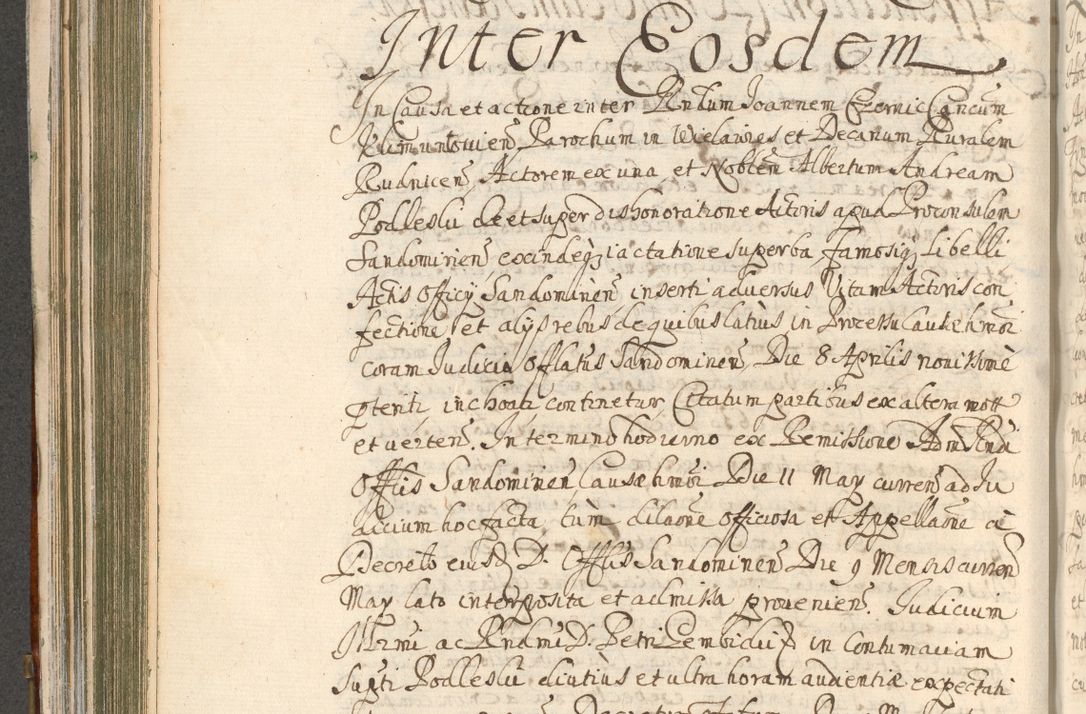 Inter Eosdem
In Causa et actione inter Rndum Joannem Czernic Cancum
Klimuntouien Parochum in Wielawies et Decanum Ruralem
Rudnicen, Actorem ex una, et Noblem Albertum Andream
Podleski de et super dishonoratione Actoris apud Proconsulem
Sandomirien, exindeq; iactatione superba, famosiq; Libelli
Actis Officy Sandomirien inserti aduersus Vitam Actoris con
fectione, et alys rebus de quibus latius in Processu Causæ hmoi
coram Judicio Offlatus Sandomirien, Die 8 Aprilis nouissime
pteriti inchoati continetur, Citatum partibus ex altera
et uerten. In termino hodierno ex Remissione Adm Rndi
Offlis Sandomirien Causæ hmoi Die 11 May curren ad Ju
dicium hoc facta, tum dilaone officiosa et Appellaone a
Decreto eiusd D. Offlis Sandomirien Die 9 Mensis curren
May lato interposita et admissa prouenien. Judicium
Illrmi ac Rndmi D. Petri Gembicki in contumaciam
Supti Podleski diutius et ultra horam audentiæ expectati